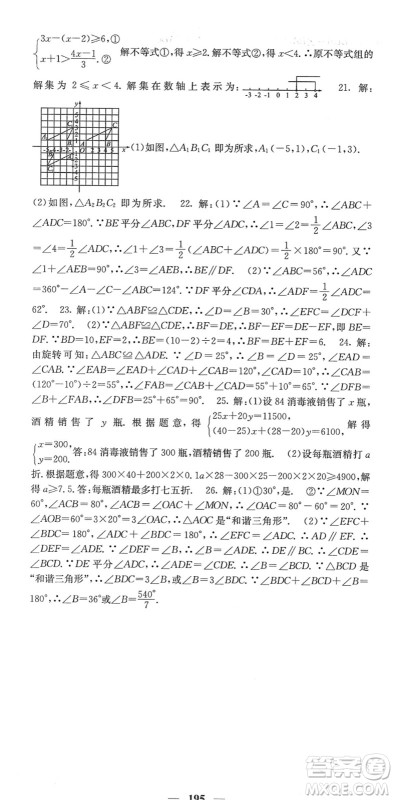 3x-(x-2)≥6,①
x+1>(4x-1)/3.② 解不等式①,得 x≥2.解不等式②,得 x<4.∴原不等式组的
解集为 2≤x<4.解集在数轴上表示为: -3 -2 -1 0 1 2 3 4 21. 解:
(1)如图,△A₁B₁C₁ 即为所求,A₁(-5,1),C₁(-1,3).
(2)如图,△A₂B₂C₂ 即为所求. 22. 解:(1)∵∠A=∠C=90°,∴∠ABC+
∠ADC=180°.∵BE平分∠ABC,DF平分∠ADC,∴∠1=1/2∠ABC,∠3=
1/2∠ADC,∴∠1+∠3=1/2(∠ABC+∠ADC)=1/2×180°=90°.又∵
∠1+∠AEB=90°,∴∠3=∠AEB,∴BE∥DF. (2)∵∠ABC=56°,∴∠ADC
=360°-∠A-∠C-∠ABC=124°.∵DF平分∠ADC,∴∠CDF=1/2∠ADC=
62°. 23. 解:(1)∵△ABF≌△CDE,∴∠D=∠B=30°,∴∠EFC=∠DCF+
∠D=70°. (2)∵△ABF≌△CDE,∴BF=DE,∴BF-EF=DE-EF,即BE=
DF.∵BD=10,EF=2,∴BE=(10-2)÷2=4,∴BF=BE+EF=6. 24. 解:
由旋转可知:△ABC≌△ADE.∵∠D=25°,∴∠B=∠D=25°,∠EAD=
∠CAB.∵∠EAB=∠EAD+∠CAD+∠CAB=120°,∠CAD=10°,∴∠CAB=
(120°-10°)÷2=55°,∴∠FAB=∠CAB+∠CAD=55°+10°=65°.∵∠DFB=
∠B+∠FAB,∴∠DFB=25°+65°=90°. 25. 解:(1)设84消毒液销售了 x 瓶,
酒精销售了 y 瓶.根据题意,得 25x+20y=11500,
(40-25)x+(30-20)y=6100, 解得
x=300,
y=200. 答:84消毒液销售了300瓶,酒精销售了200瓶. (2)设每瓶酒精打 a
折.根据题意,得 300×40+200×2×0.1a×28-300×25-200×2×20≥4900,解
得 a≥7.5.答:每瓶酒精最多打七五折. 26. 解:(1)①30°,是. ②∵∠MON=
60°,∠ACB=80°,∠ACB=∠OAC+∠MON,∴∠OAC=80°-60°=20°.∵
∠AOB=60°=3×20°=3∠OAC,∴△AOC是“和谐三角形”. (2)∵∠EFC+
∠BDC=180°,∠ADC+∠BDC=180°,∴∠EFC=∠ADC,∴AD∥EF,
∴∠DEF=∠ADE.∵∠DEF=∠B,∴∠B=∠ADE,∴DE∥BC,∴∠CDE=
∠BCD.∵DE平分∠ADC,∴∠ADE=∠CDE,∴∠B=∠BCD.∵△BCD是
“和谐三角形”,∴∠BDC=3∠B,或∠B=3∠BDC.∵∠BDC+∠BCD+∠B=
180°,∴∠B=36°或∠B=540°/7.
195